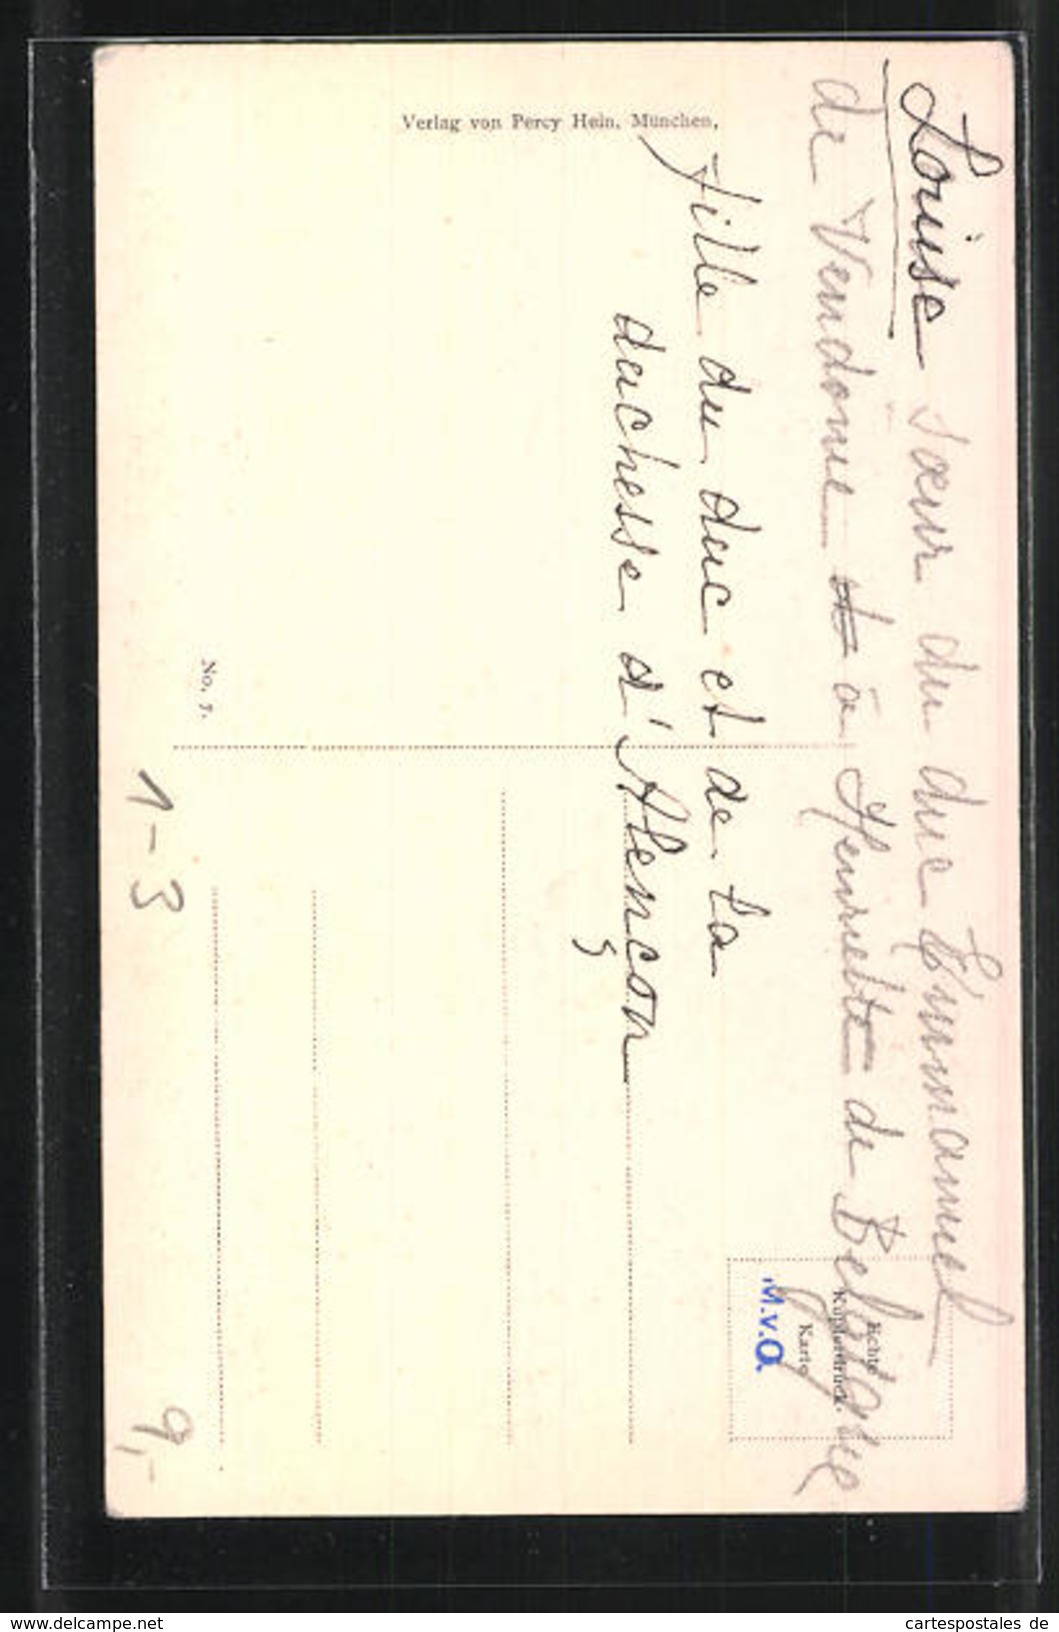 Louise soeur du duc Emmanuel
de Vendome à Henriette de Belgique
fille du duc et de la
duchesse d'Alençon
Verlag von Percy Hein, München,
No. 7.
Echte
Kupferdruck
Karte
M.v.O.
1-3
9,-
www.delcampe.net
cartespostales de